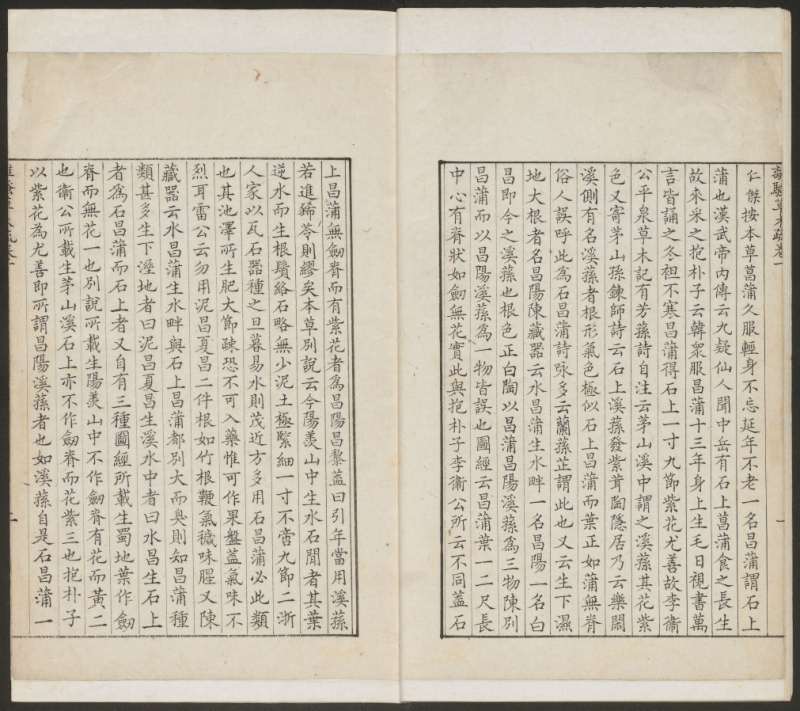 離騷草木疏卷一
仁傑按本草菖蒲久服輕身不忘延年不老一名昌蒲謂石上
蒲也漢武帝内傳云九疑仙人聞中岳有石上菖蒲食之長生
故來采之抱朴子云韓衆服昌蒲十三年身上生毛日視書萬
言皆誦之冬袒不寒昌蒲得石上一寸九節紫花尤善故李衞
公平泉草木記有芳蓀詩自注云茅山溪中謂之溪蓀其花紫
色又寄茅山孫鍊師詩云石上溪蓀發紫茸陶隱居乃云樂閒
溪側有名溪蓀者根形氣色極似石上昌蒲而葉正如蒲無脊
俗人誤呼此為石昌蒲詩咏多云蘭蓀芷謂此也又云生下濕
地大根者名昌陽陳藏器云水昌蒲生水畔一名昌陽一名白
昌即今之溪蓀也根色正白陶以昌蒲昌陽溪蓀為三物陳別
昌蒲而以昌陽溪蓀為一物皆誤也圖經云昌蒲葉一二尺長
中心有脊狀如劒無花實此與抱朴子李衞公所云不同蓋石
上昌蒲無劒脊而有紫花者為昌陽昌黎蓋曰引年當用溪蓀
若進絺苓則繆矣本草別說云今陽羡山中生水石閒者其葉
逆水而生根鬚絡石略無少泥土極緊細一寸不啻九節二浙
人家以瓦石器種之旦暮易水則茂近方多用石昌蒲必此類
也其池澤所生肥大節疎恐不可入藥惟可作果盤蓋氣味不
烈耳雷公云勿用泥昌夏昌二件根如竹根鞭氣穢味腥又陳
藏器云水昌蒲生水畔與石上昌蒲都別大而臭則知昌蒲種
類甚多生下溼地者曰泥昌夏昌生溪水中者曰水昌生石上
者為石昌蒲而石上者又自有三種圖經所載生蜀地葉作劒
脊而無花一也別說所載生陽羡山中不作劒脊有花而黃二
也衞公所載生茅山溪石上亦不作劒脊而花紫三也抱朴子
以紫花為尤善即所謂昌陽溪蓀者也如溪蓀自是石昌蒲一